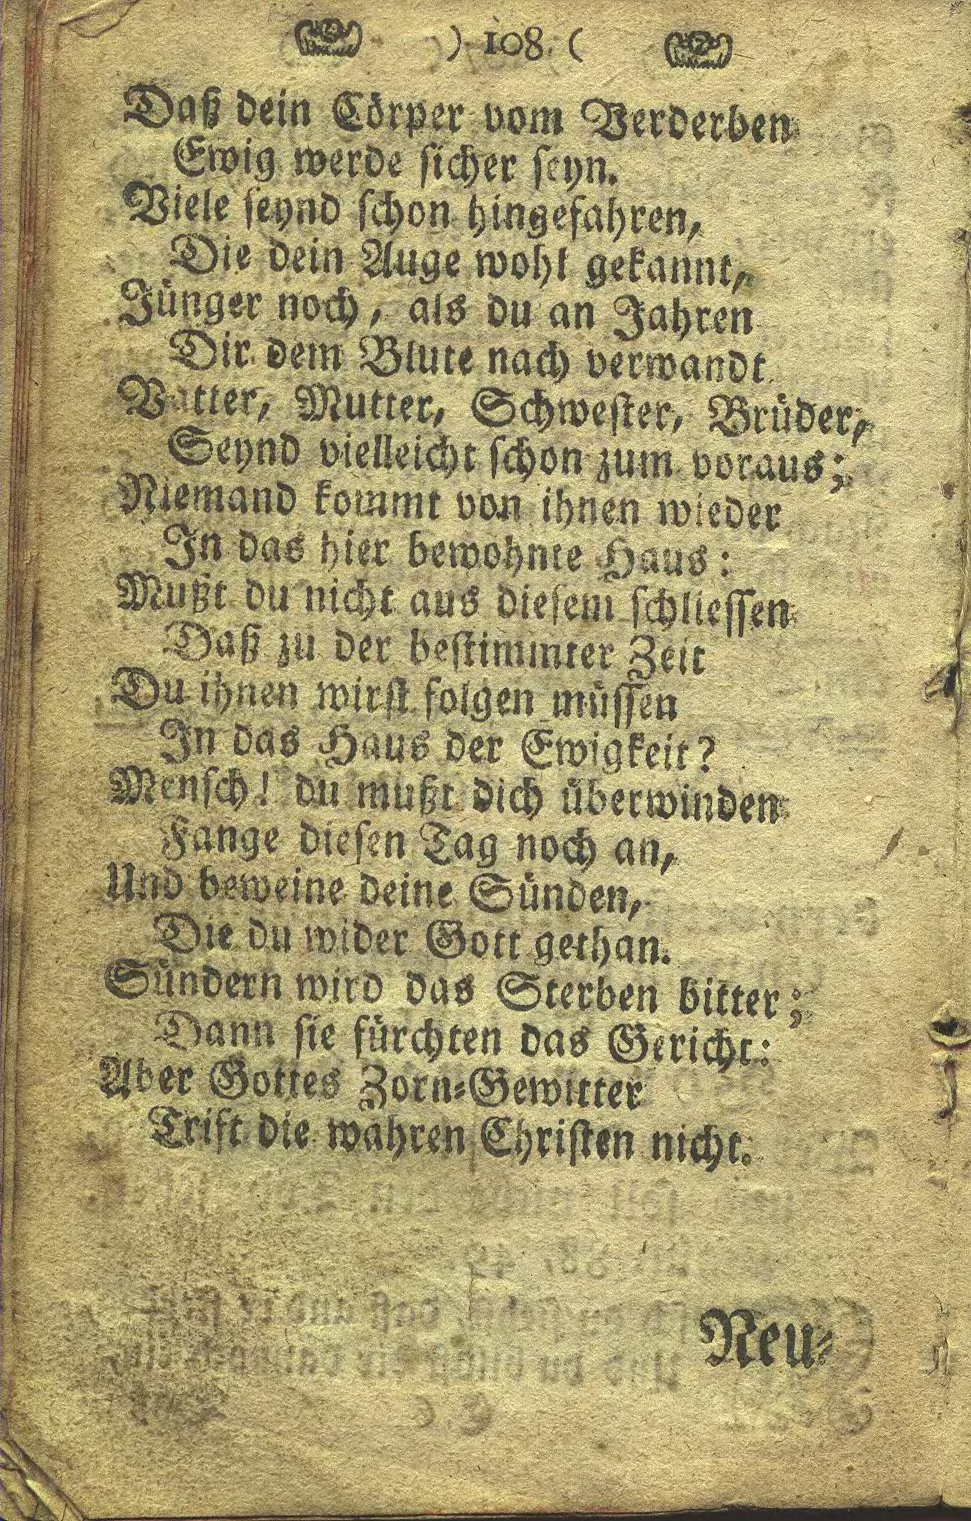 ) 108 (
Daß dein Cörper vom Verderben
Ewig werde sicher seyn.
Viele seynd schon hingefahren,
Die dein Auge wohl gekannt,
Jünger noch, als du an Jahren
Dir dem Blute nach verwandt
Vatter, Mutter, Schwester, Brüder,
Seynd vielleicht schon zum voraus;
Niemand kommt von ihnen wieder
In das hier bewohnte Haus:
Mußt du nicht aus diesem schliessen
Daß zu der bestimmter Zeit
Du ihnen wirst folgen müssen
In das Haus der Ewigkeit?
Mensch! du mußt dich überwinden
Fange diesen Tag noch an,
Und beweine deine Sünden,
Die du wider Gott gethan.
Sündern wird das Sterben bitter;
Dann sie fürchten das Gericht:
Aber Gottes Zorn-Gewitter
Trift die wahren Christen nicht.
Neu-